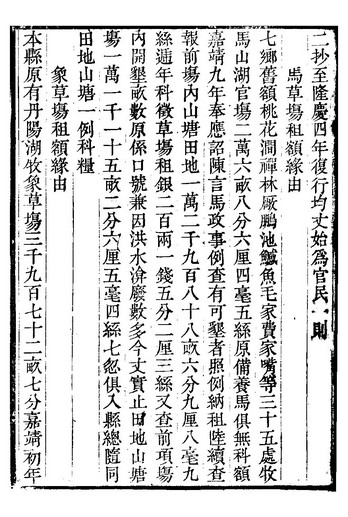 二抄至隆慶四年復行均丈始爲官民一則
馬草塲租額緣由
七鄉舊額桃花澗禪林厰鵬池鱸魚毛家費家嘴等三十五處牧
馬山湖官塲二萬六畝八分六厘四毫五絲原備養馬俱無科額
嘉靖九年奉應詔陳言馬政事例查有可墾者照例納租陸續查
報前塲內山塘田地一萬二千九百八十八畝六分九厘八毫九
絲逓年科徵草塲租銀二百两一錢五分二厘三絲又查前項塲
內開墾畝數原係口號兼因洪水渰廢數多今丈實止田地山塘
塲一萬一千一十五畝二分六厘五毫四絲七忽俱入縣總隨同
田地山塘一例科糧
象草塲租額緣由
本縣原有丹陽湖牧象草塲三千九百七十二畝七分嘉靖初年